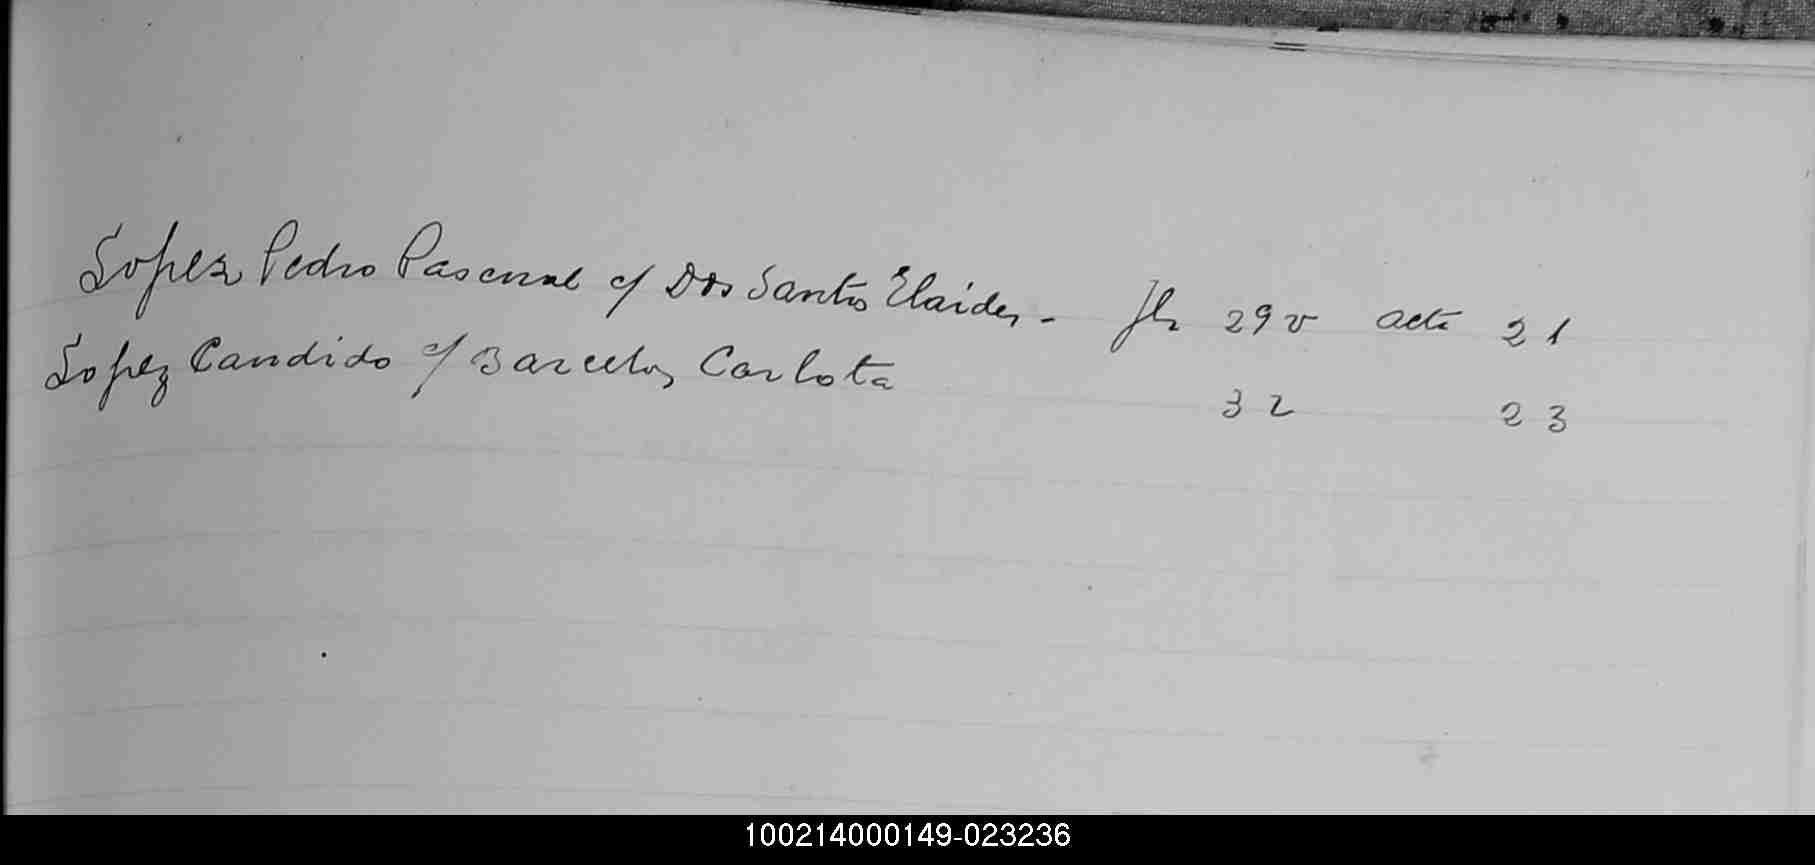 Lopez Pedro Pascual c/ Dos Santos Elaides - fls 29 v acta 21
Lopez Candido c/ Barcelos Carlota 32 23
100214000149-023236